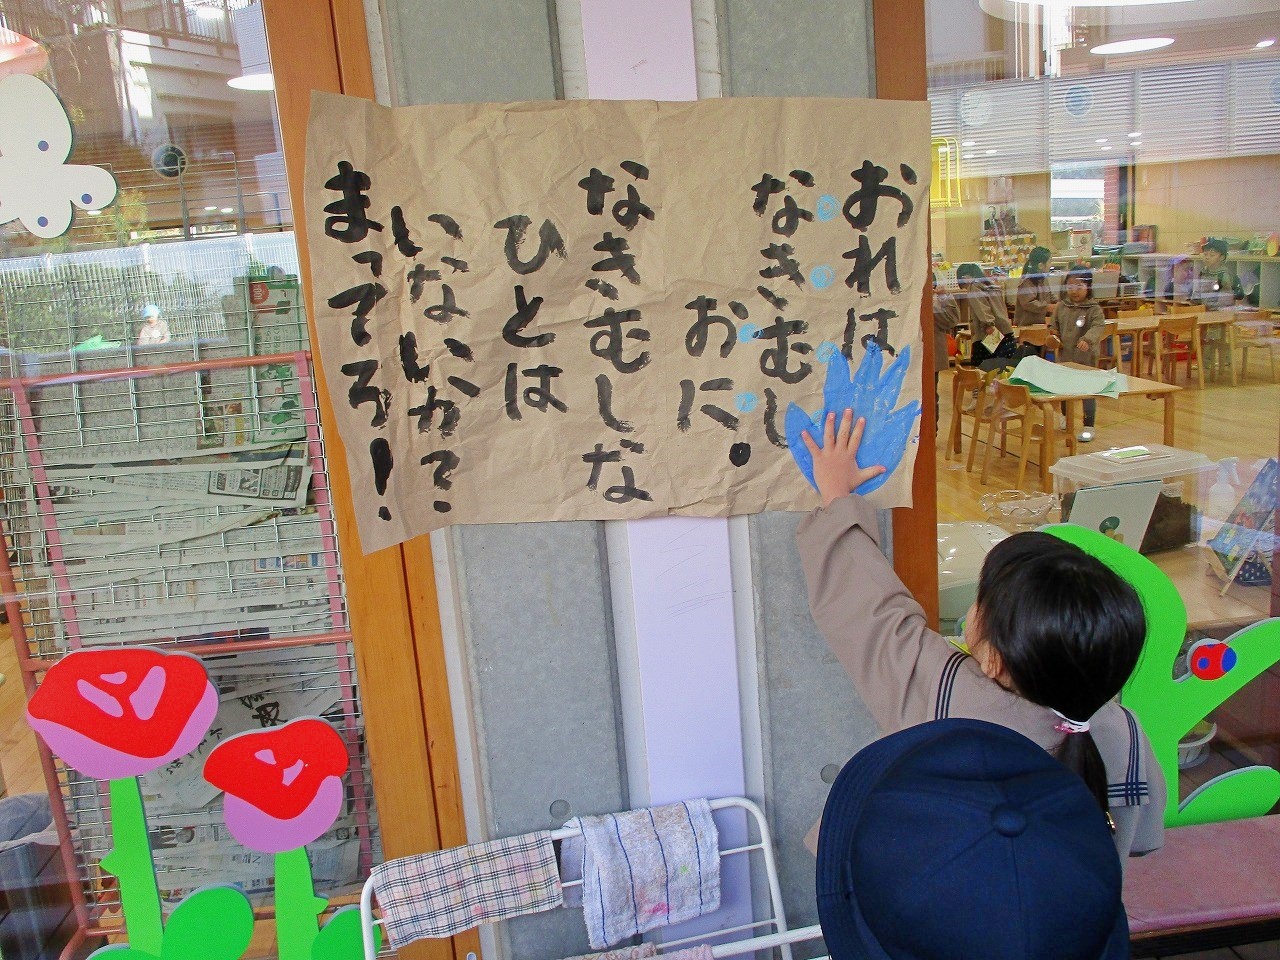 おれは
なきむし
おに.
なきむしな
ひとは
いないか?
まってろ!